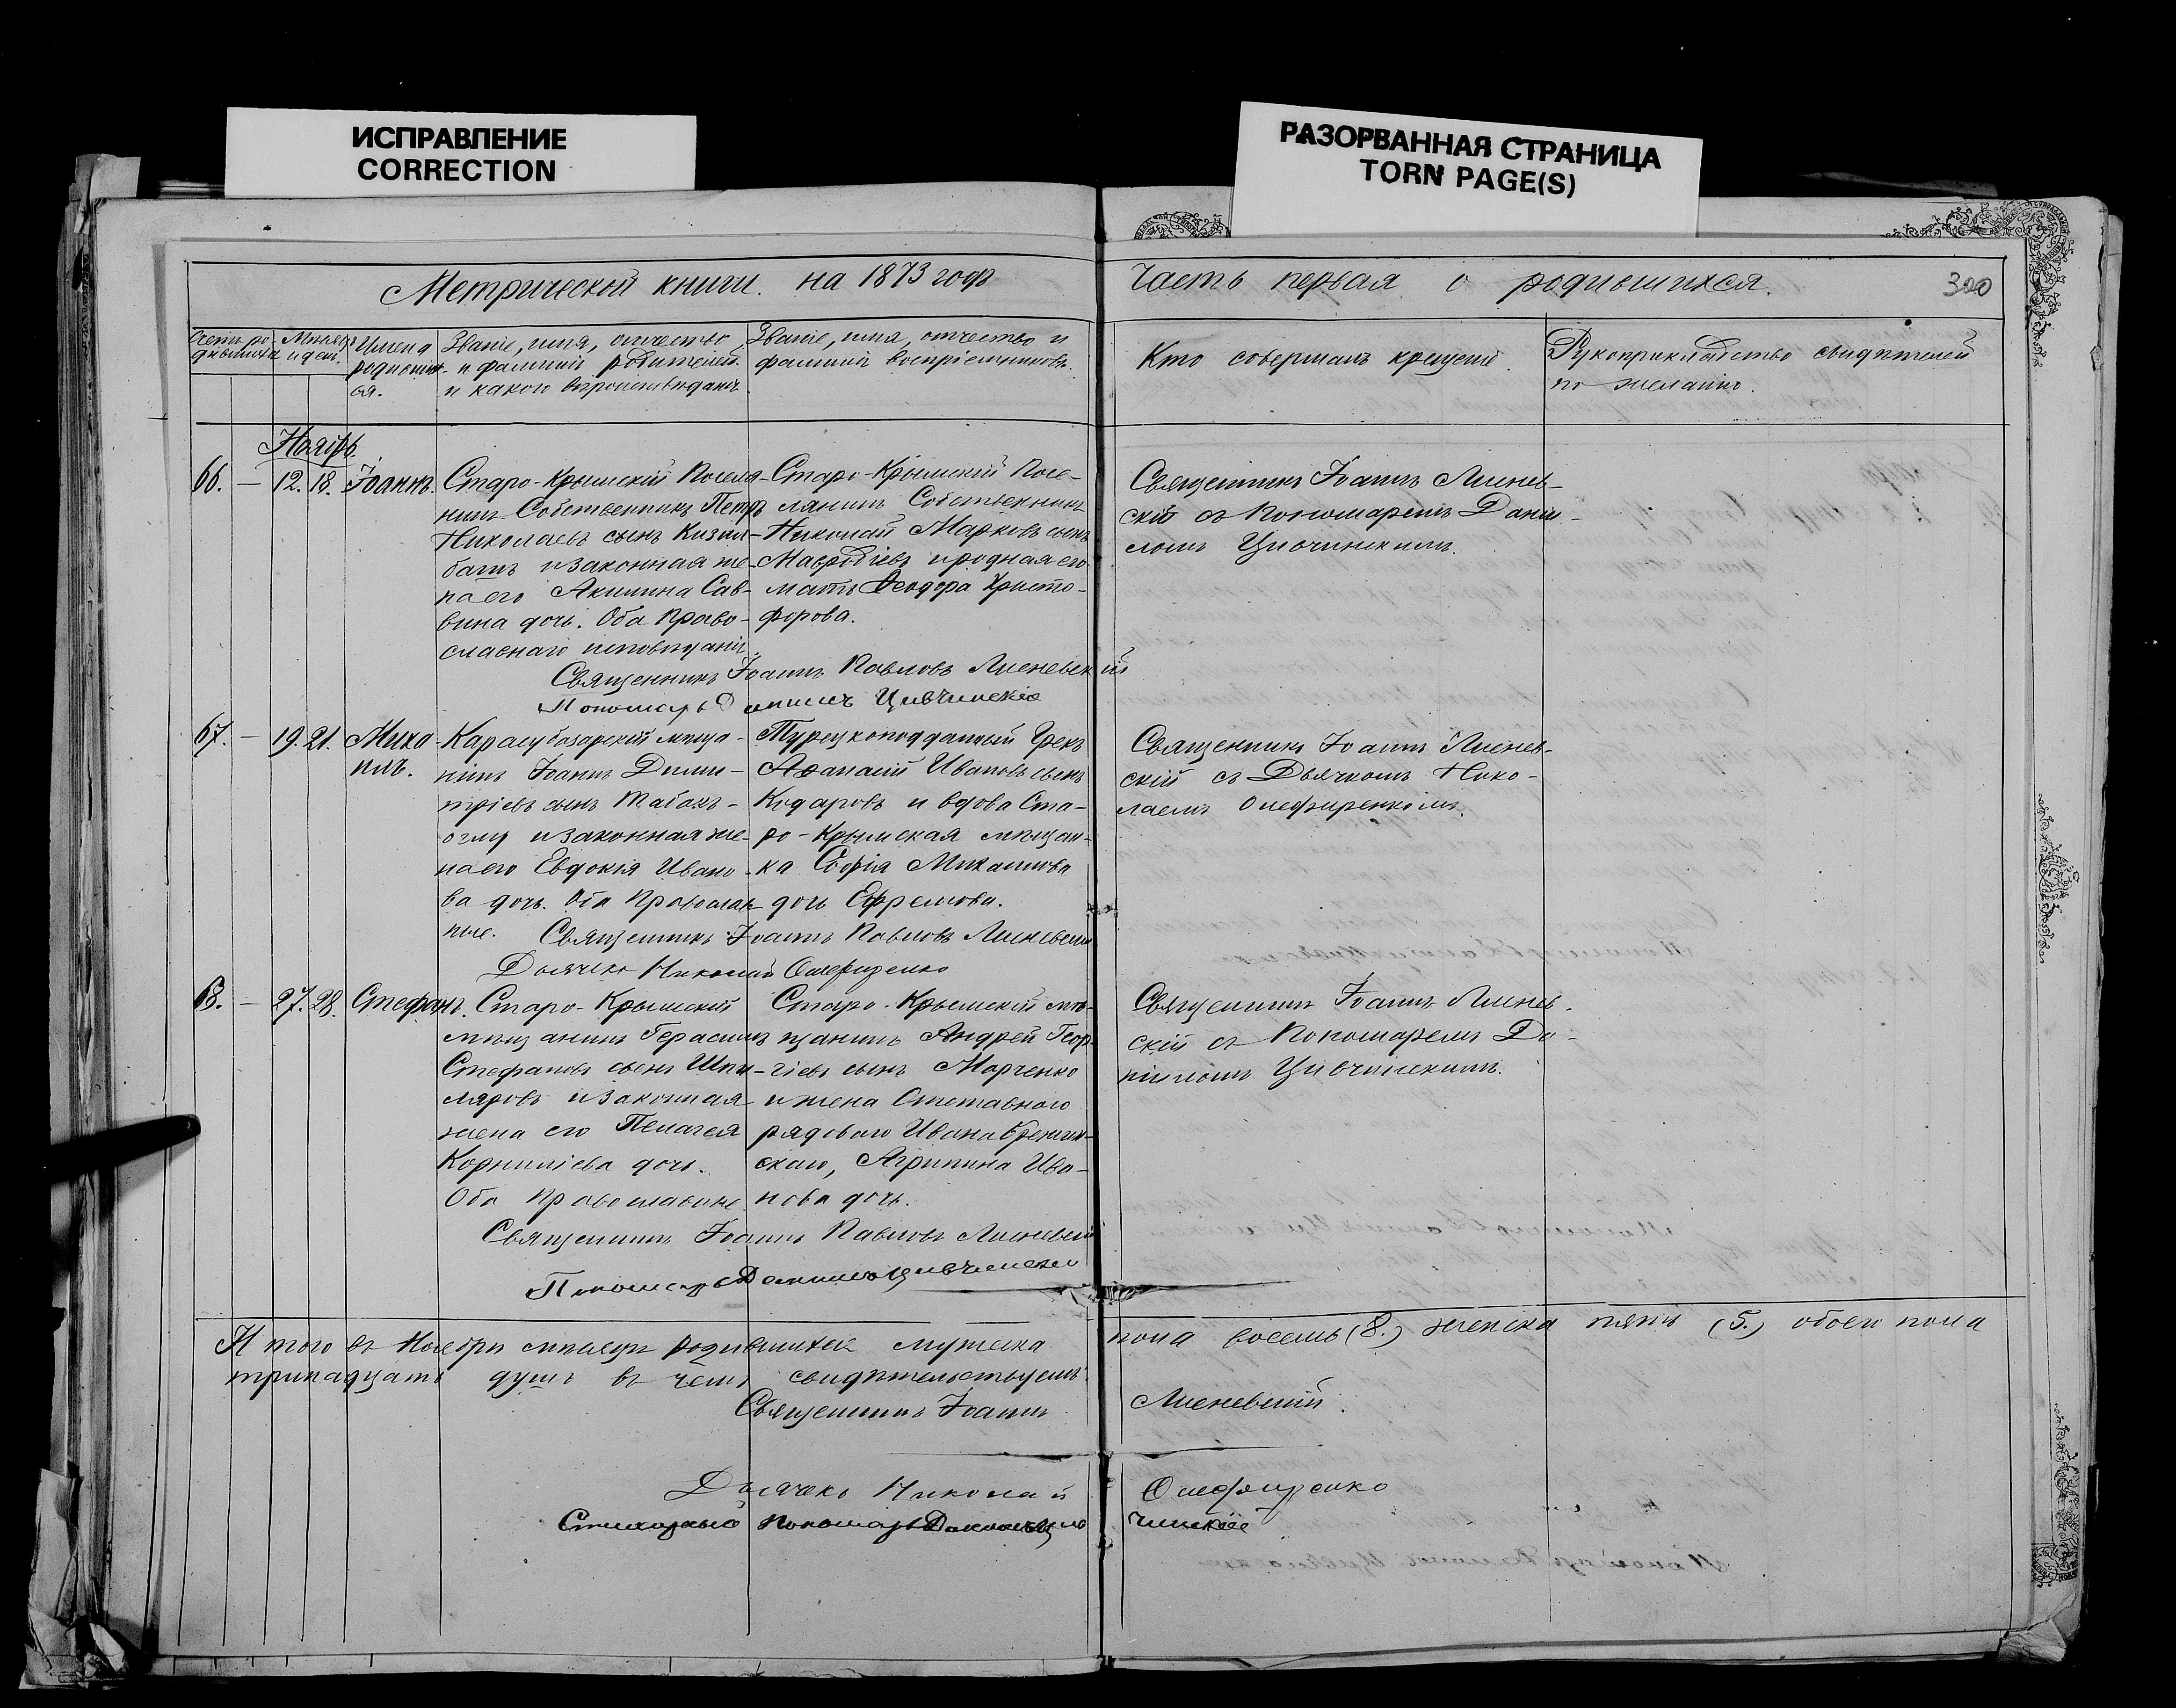 ИСПРАВЛЕНИЕ
CORRECTION
РАЗОРВАННАЯ СТРАНИЦА
TORN PAGE(S)
Метрической книги на 1873 годъ
Часть первая о родившихся.
300
Счетъ ро-
дившихся
Мѣсяцъ
и день.
Имена
родивших-
ся.
Званіе, имя, отчество
и фамилія родителей
и какого вѣроисповѣданія.
Званіе, имя, отчество и
фамилія воспріемниковъ.
Кто совершалъ крещеніе.
Рукоприкладство свидѣтелей
по желанію.
Ноябрь.
66. — 12. 18. Іоаннъ.
Старо-Крымскій Поселя-
нинъ Собственникъ Петръ
Николаевъ сынъ Кизил-
башъ и законная же-
на его Акилина Сав-
вина дочь. Оба Право-
славнаго исповѣданія.
Старо-Крымскій Посе-
лянинъ Собственникъ
Николай Марковъ сынъ
Мавродіевъ и родная его
мать Ѳеодора Христо-
форова.
Священникъ Іоаннъ Лиснев-
скій съ Пономаремъ Дани-
ломъ Цивчинскимъ.
Священникъ Іоаннъ Павловъ Лисневскій
Пономарь Даниилъ Цивчинскій
67. — 19. 21. Миха-
илъ.
Карасубазарскій мѣща-
нинъ Іоаннъ Дими-
тріевъ сынъ Табахъ-
оглу и законная же-
на его Евдокія Ивано-
ва дочь. Оба Православ-
ные.
Турецкоподданный Грекъ
Аѳанасій Ивановъ сынъ
Кидаровъ и вдова Ста-
ро-Крымская мѣщан-
ка Софія Михаилова
дочь Ефремова.
Священникъ Іоаннъ Лиснев-
скій съ Дьячкомъ Нико-
лаемъ Олефиренкомъ.
Священникъ Іоаннъ Павловъ Лисневскій
Дьячекъ Николай Олефиренко
68. — 27. 28. Стефанъ.
Старо-Крымскій
мѣщанинъ Герасимъ
Стефановъ сынъ Шпи-
ляровъ и законная
жена его Пелагея
Корниліева дочь.
Оба Православные.
Старо-Крымскій мѣ-
щанинъ Андрей Геор-
гіевъ сынъ Марченко
и жена Отставного
рядового Ивана
скаго, Агрипина Ива-
нова дочь.
Священникъ Іоаннъ Лиснев-
скій съ Пономаремъ Да-
ниломъ Цивчинскимъ.
Священникъ Іоаннъ Павловъ Лисневскій
Пономарь Даниилъ Цивчинскій
Итого въ Ноябрѣ мѣсяцѣ родившихся мужеска пола восемь (8.) женска пять (5.) обоего пола
тринадцать душъ въ чемъ свидѣтельствуемъ.
Священникъ Іоаннъ Лисневскій.
Дьячекъ Николай Олефиренко
Стихарный Пономарь Даниилъ Цивчинскій